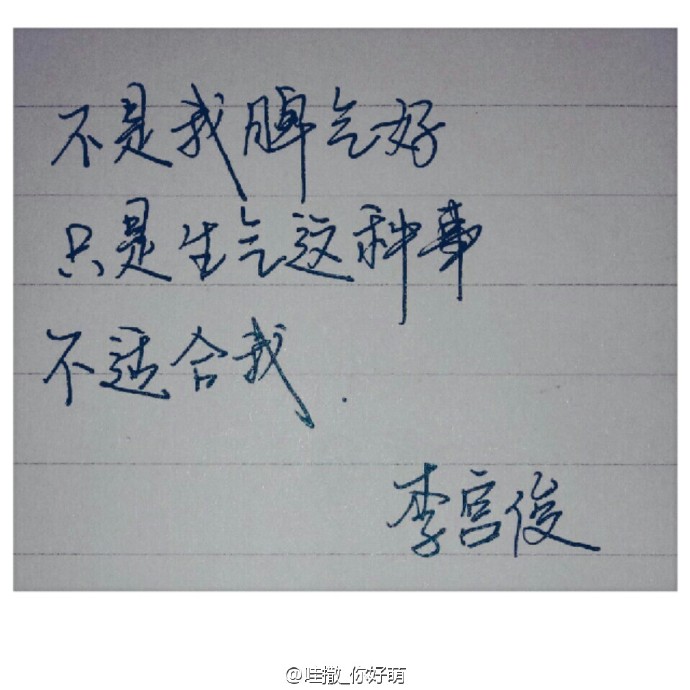 不是我脾气好
只是生气这种事
不适合我.
李宫俊
@哇撒_你好萌